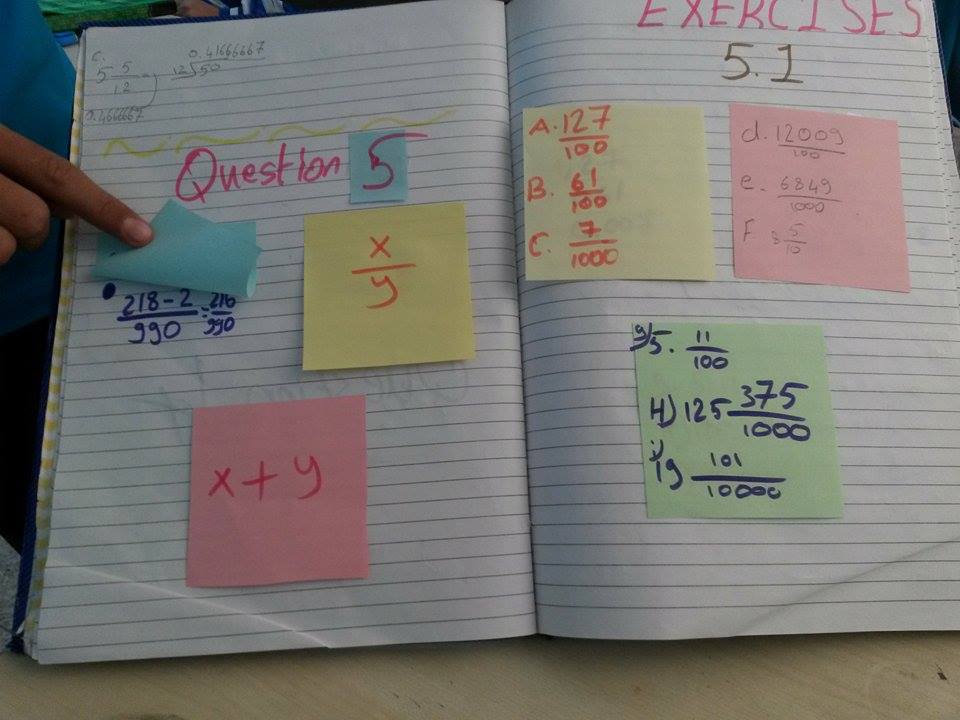 c.
5 5/12 0.41666667
12 50
0.4666667
Question 5
x/y
218-2/990 = 216/990
x + y
EXERCISES
5.1
A. 127/100
B. 61/100
C. 7/1000
d. 12009/100
e. 6849/1000
F 8 5/10
g) 5. 11/100
H) 125 375/1000
i) 19 101/10000